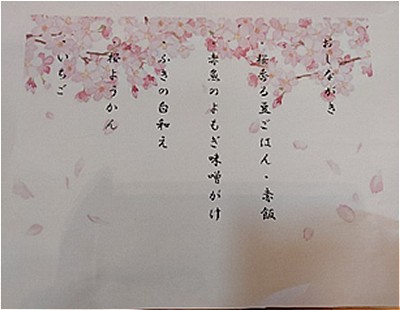 おしながき
・桜香る豆ごはん・赤飯
・赤魚のよもぎ味噌がけ
・ふきの白和え
・桜ようかん
・いちご